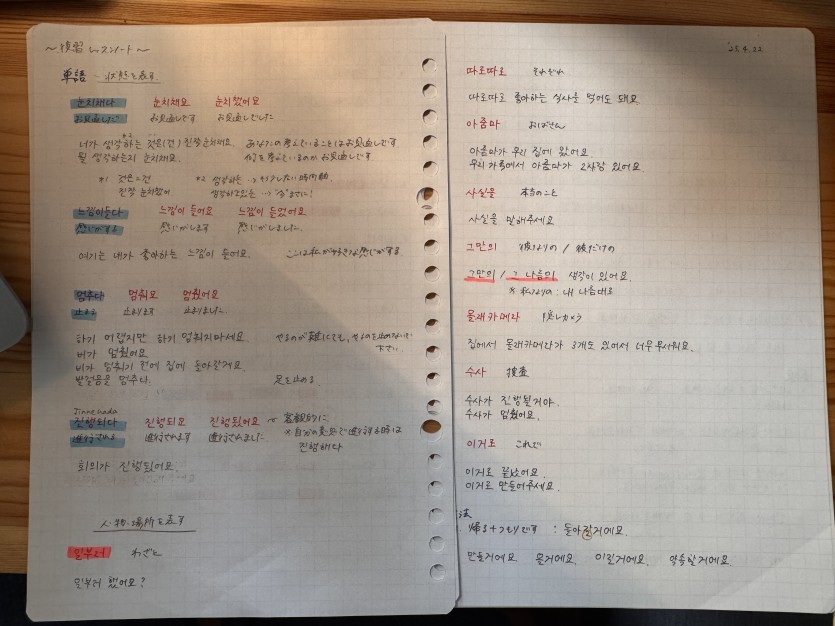 〜復習レスンノート〜
単語 〜状態を表す。
눈치채다 눈치채요 눈치챘어요
お見通しだ お見通しです お見通しでした
너가 생각하는 것은(건) 진짜 눈치채요. あなたの考えていることはお見通しです
뭘 생각하는지 눈치채요. 何を考えているのかお見通しです
*1 것은=건 *2 생각하는
진짜 눈치챘어 생각하고있는
느낌이들다 느낌이 들어요 느낌이 들었어요
感じがする 感じがします 感じがしました.
여기는 내가 좋아하는 느낌이 들어요. ここは私が好きな感じがする
멈추다 멈춰요 멈췄어요
止まる 止まります 止まりました.
하기 어렵지만 하기 멈춰지마세요. やるのが難しくても、やるのを止めないで
下さい.
비가 멈췄어요
비가 멈추기 전에 집에 돌아갈게요.
발걸음을 멈추다. 足を止める.
Jinnehada
진행되다 진행되요 진행됬어요 ← 客観的に
進行される 進行されます 進行されました *自分の意思で進行する時は
진행해다
회의가 진행됬어요.
人・物・場所を表す
일부러 わざと
일부러 했어요?
'23.4.22
따로따로 それぞれ
따로따로 좋아하는 식사을 먹어도 돼요.
아줌마 おばさん
아줌마가 우리 집에 왔어요.
우리 가족에서 아줌마가 2사람 있어요
사실을 本当のこと
사실을 말해주세요
그만의 彼なりの / 彼だけの
그만의 / 그 나름의 생각이 있어요.
* 私なりの : 내 나름대로
몰래카메라 隠しカメラ
집에서 몰래카메라가 3개도 있어서 너무무서워요.
수사 捜査
수사가 진행될거야.
수사가 멈췄어요.
이거로 これで
이거로 끝났어요.
이거로 만들어주세요.
法
帰る+つもりです : 돌아갈거에요.
만들거에요. 올거에요. 이길거에요. 약속할거에요.